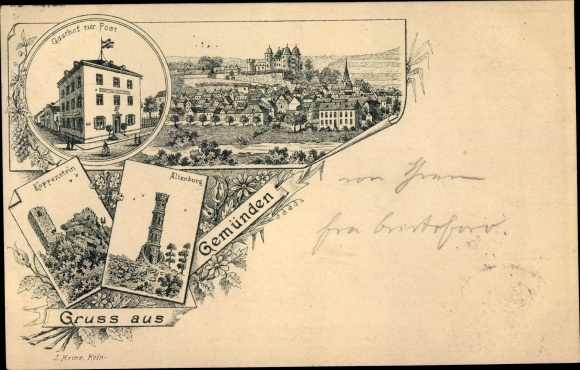 Gasthof zur Post
Koppenstein
Altenburg
Gemünden
Gruss aus
J. Heinz, Köln.
von Ihrem